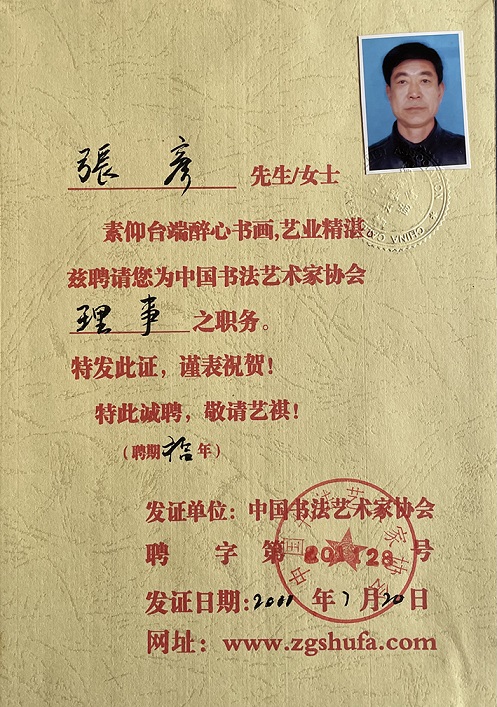 張 彦 先生/女士
素仰台端醉心书画,艺业精湛
兹聘请您为中国书法艺术家协会
理事 之职务。
特发此证，谨表祝贺！
特此诚聘，敬请艺祺！
（聘期拾年）
发证单位：中国书法艺术家协会
聘 字 第 号
发证日期:2011 年 7 月 20 日
网址：www.zgshufa.com